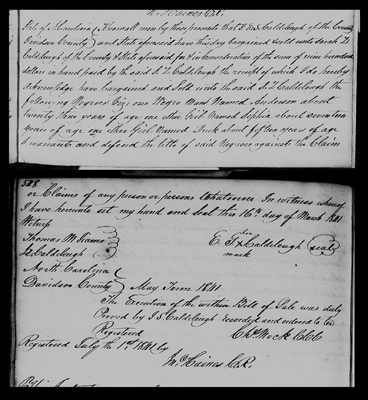 W. Haines C.R.
State of N. Carolina Know all men by these presents that I E.S. Caldcleugh of the County
Davidson County and State aforesaid have this day bargained & sold unto Sarah
Caldcleugh of the County & State aforesaid for & in consideration of the sum of nine hundred
dollars in hand paid by the said S. Caldcleugh the receipt of which I do hereby
acknowledge have bargained and sold unto the said Caldcleugh the
following Negroes Viz; one Negro Man Named Anderson about
twenty three years of age one other Girl Named Sophia about seventeen
years of age one other Girl Named about fifteen years of age
I warrant and defend the title of said Negroes against the Claim
528
or Claims of any person or persons Whatsoever In witness whereof
I have hereunto set my hand and Seal this 16th day of March 1841
Witness
Thomas M. E. Caldcleugh seal
Caldcleugh mark
North Carolina
Davidson County May Term 1841
The Execution of the within Bill of Sale was duly
Proved by J S. Caldcleugh recorded and ordered to be
Registered Chs Mock CCC
Registered July the 1st 1841 by
Jno Haines C.R.